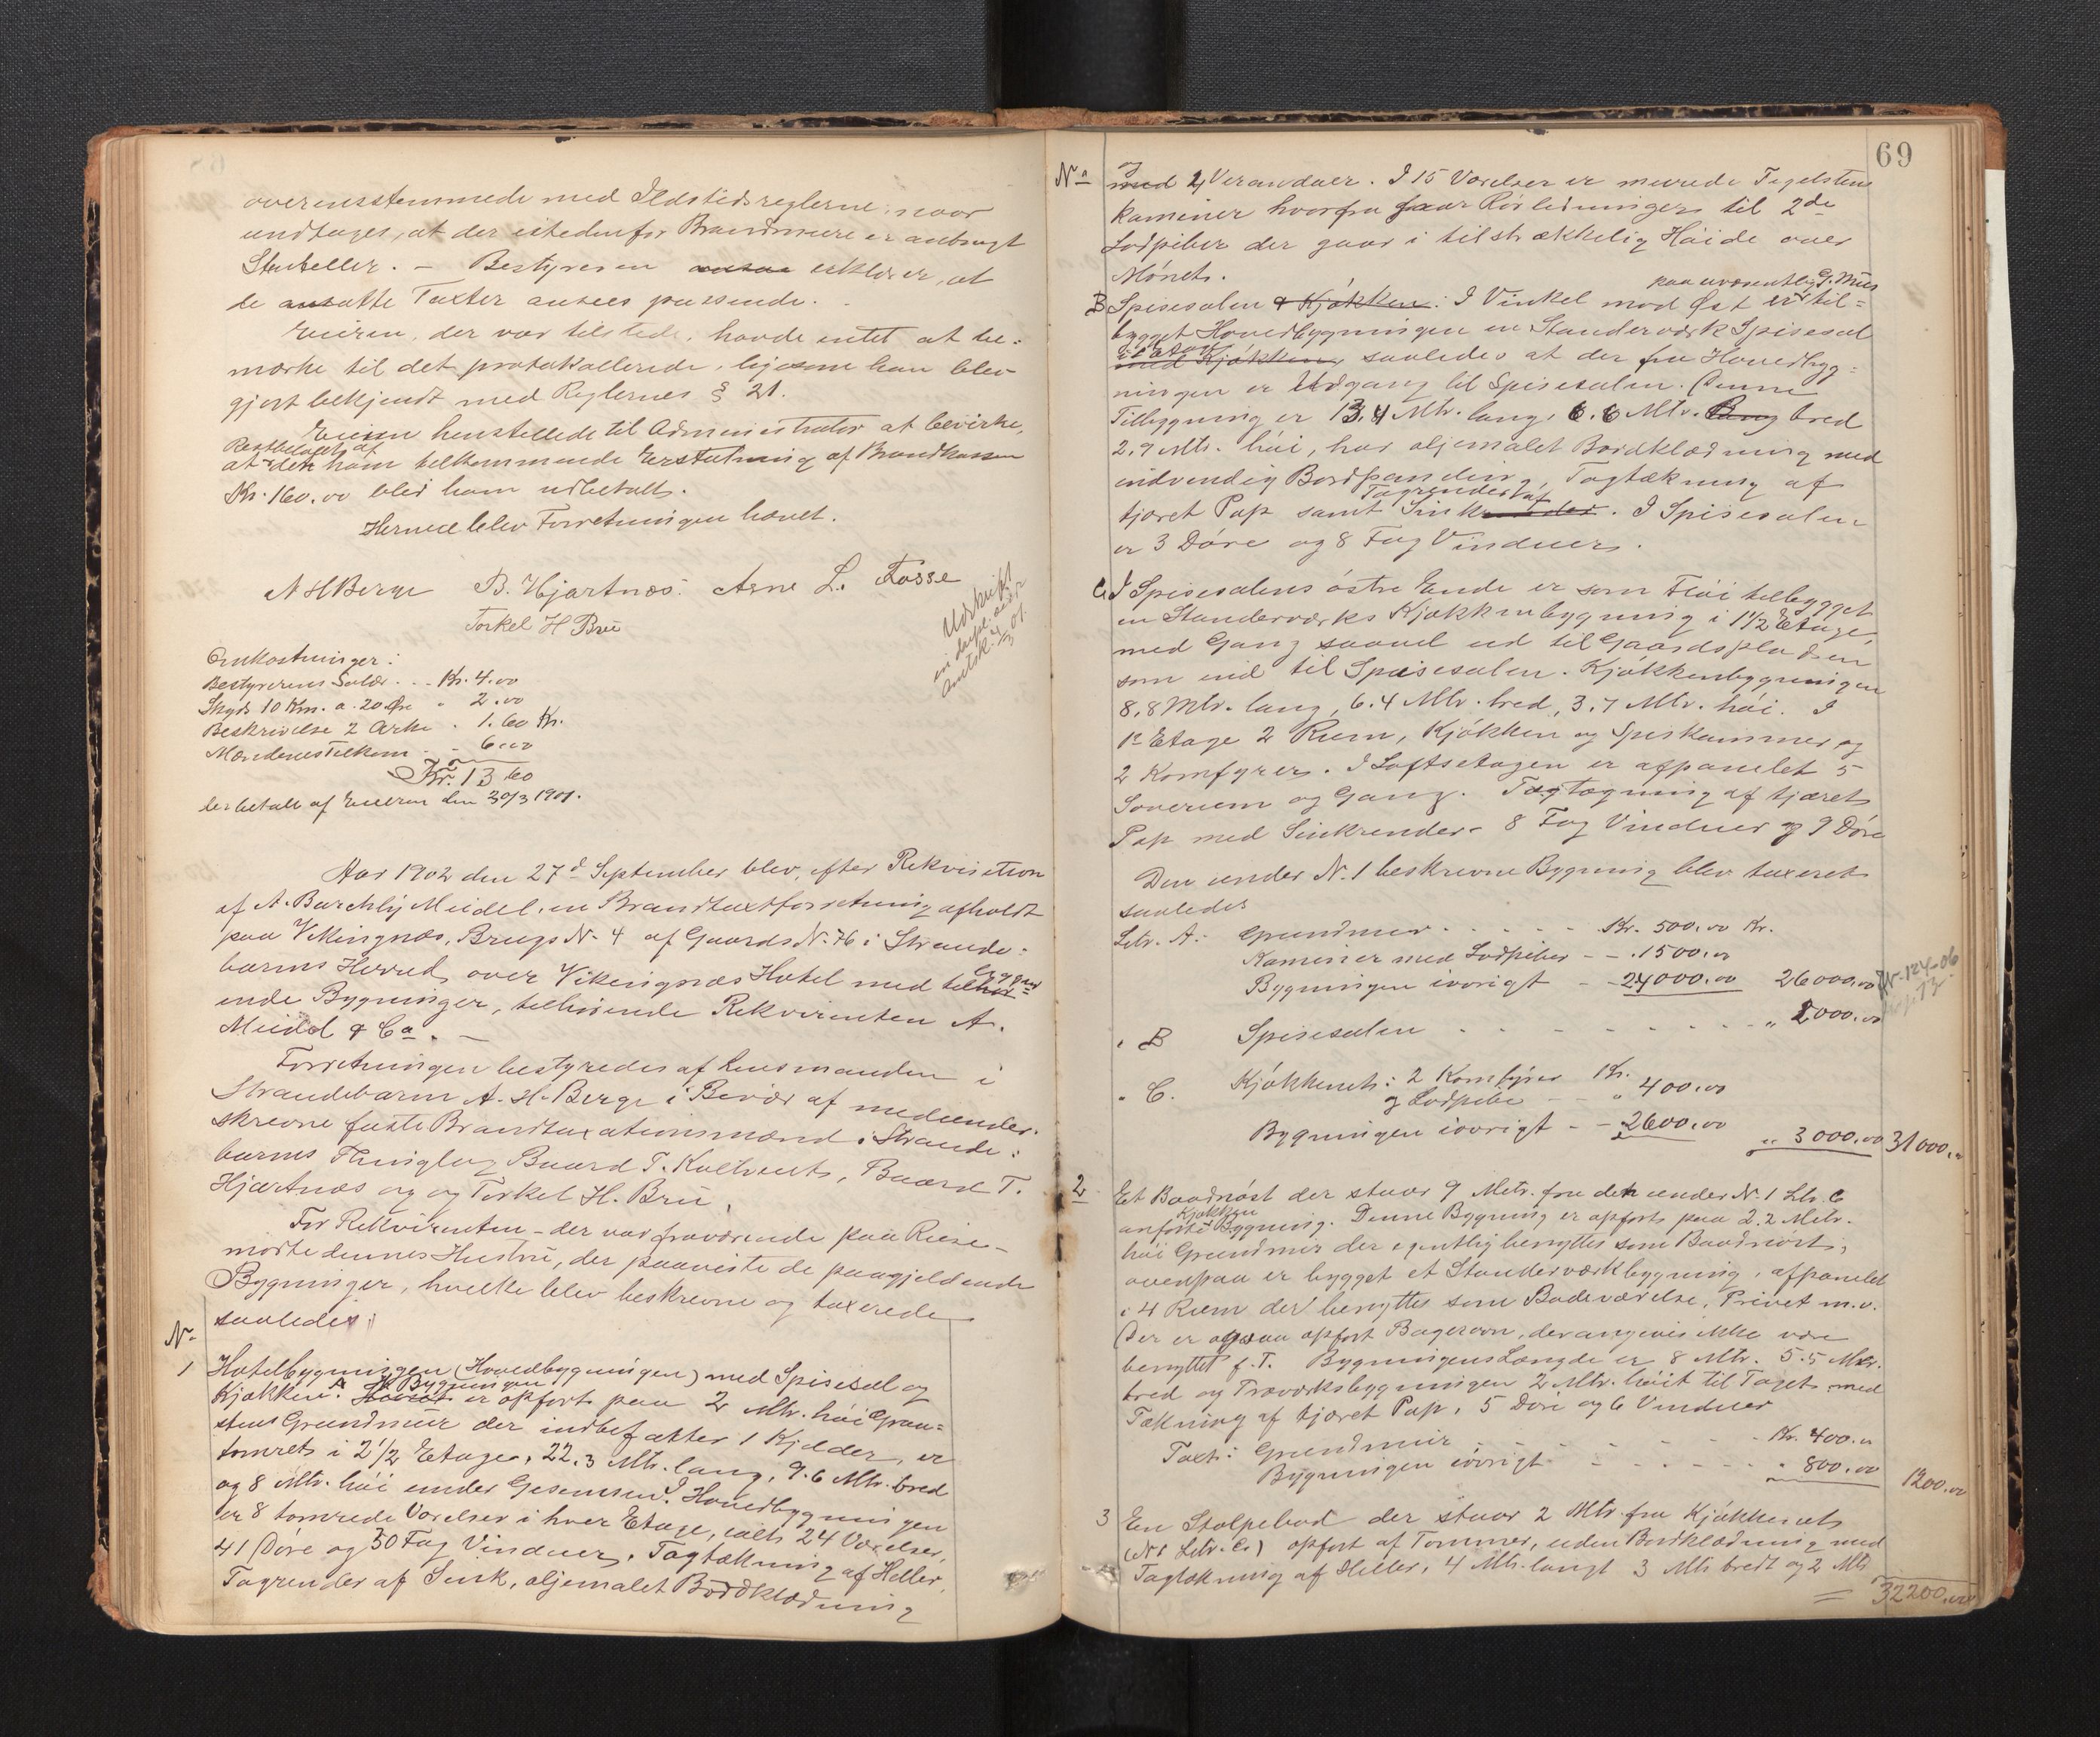 overensstemmede med Ildstedsreglerne, naar
undtages, at der istedenfor Brandmure er anbragt
Stenheller. – Bestyreren erklærer, at
de ansatte Taxter ansees passende. –
Eieren, der var tilstede, havde intet at be-
mærke til det protokollerede, ligesom han blev
gjort bekjendt med Reglernes § 21.
Eieren henstillede til Administrator at bevirke,
Restbeløbet af
at den ham tilkommende Erstatning af Brandkassen
Kr. 160.00 blev ham udbetalt.
Hermed blev Forretningen hævet.
A H Berge B. Hjartnæs. Arne L. Fosse
Torkel H Bru
Udskrift
Omkostninger:
Bestyrerens Salær . . . Kr. 4.00
Skyds 10 Km. a. 20 Øre " 2.00
Beskrivelse 2 Arke . 1.60 Kr.
Mændenes Tilkom . . 6.00
Kr. 13.60
er betalt af Eieren den 30/3 1901.
Aar 1902 den 27d September blev, efter Rekvisition
af A. Buschbÿ Meidel, en Brandtaxtforretning afholdt
paa Vikingnæs, Brugs N. 4 af Gaards N. 76 i Strande-
barms Herred, over Vikingnæs Hotel med tilligg-
ende Bygninger, tilhørende Rekvirenten A.
Meidel & Co. –
Forretningen bestyredes af Lensmanden i
Strandebarm A. H. Berge i Bevær af medunder-
skrevne faste Brandtaxationsmænd i Strande-
barms Thinglag Baard T. Koltveit, Baard T.
Hjartnæs og og Torkel H. Bru.
For Rekvirenten – der var fraværende paa Reise –
mødte dennes Hustru, der paaviste de paagjeldende
Bygninger, hvilke blev beskrevne og taxerede
saaledes:
No
1 Hotelbygningen (Hovedbygningen) med Spisesal og
Kjøkken. A. Bygningen er opført paa 2 Mtr. høi Graa-
stens Grundmur der indbefatter 1 Kjelder, er
tømret i 2 1/2 Etage, 22.3 Mtr. lang, 9.6 Mtr. bred
og 8 Mtr. høi under Gesimsen. I Hovedbygningen
er 8 tømrede Værelser i hver Etage, ialt 24 Værelser,
41 Døre og 50 Fag Vinduer. Tagtækning af Heller,
Tagrender af Sink, oljemalet Bordklædning
69
No og
med 4 Verandaer. I 15 Værelser er murede Tegelstens
Kaminer hvorfra gaar Rørledninger til 2de
Lodpiber der gaar i tilstrækkelig Høide over
Mønet.
paa uvæsentlig G. Mur
B Spisesalen & Kjøkken: I Vinkel mod Øst er til-
bygget Hovedbygningen en Standerværk Spisesal
i 1 Etage
med Kjøkken, saaledes at der fra Hovedbyg-
ningen er Udgang til Spisesalen. Denne
Tilbygning er 13.4 Mtr. lang, 6.6 Mtr. bred
2.9 Mtr. høi, har oljemalet Bordklædning med
indvendig Bordpaneling, Tagtækning af
Tagrender af
tjæret Pap samt Sink. I Spisesalen
er 3 Døre og 8 Fag Vinduer.
C. I Spisesalens østre Ende er som Fløi tilbygget
en Standerværks Kjøkkenbygning i 1 1/2 Etage,
med Gang saavel ud til Gaardspladsen
som ind til Spisesalen. Kjøkkenbygningen
8.8 Mtr. lang, 6.4 Mtr. bred, 3.7 Mtr. høi. I
1e Etage 2 Rum, Kjøkken og Spiskammer og
2 Komfyrer. I Loftsetagen er afpanelet 5
Soverum og Gang. Tagtægning af tjæret
Pap med Sinkrender. 8 Fag Vinduer og 9 Døre
Den under N. 1 beskrevne Bygning blev taxeret
saaledes
Litr. A. Grundmur . . . . . Kr. 500.00 Kr.
Kaminer med Lodpiber – – . 1500.00
Bygningen iøvrigt – – 24000.00 26000.00
" B Spisesalen . . . . . . . . . " 2000.00
" C. Kjøkkenet: 2 Komfyrer Kr.
og Lodpibe – – " 400.00
Bygningen iøvrigt – – 2600.00
" 3000.00 31000.00
2 Et Baadnøst der staar 9 Metr. fra den under N. 1 Ltr. C
Kjøkken
anførte Bygning. Denne Bygning er opført paa 2.2 Metr.
høi Grundmur der egentlig benyttes som Baadnøst,
ovenpaa er bygget et Standerværkbygning, afpanelet
i 4 Rum der benyttes som Badeværelse, Privet m.v.
Der er ogsaa opført Bagerovn, der angives ikke være
benyttet f.T. Bygningens Længde er 8 Mtr. 5.5 Mtr.
bred og Træværksbygningen 2 Mtr. høit til Taget med
Tækning af tjæret Pap, 5 Døre og 6 Vinduer
Taxt: Grundmur . . . . . . . Kr. 400.00
Bygningen iøvrigt . . . . . . " 800.00
1200.00
3 En Stolpebod der staar 2 Mtr. fra Kjøkkenet
(N 1 Litr. C.) opført af Tømmer, uden Bordklædning med
Tagtækning af Heller, 4 Mtr. langt 3 Mtr bredt og 2 Mtr
32200.00